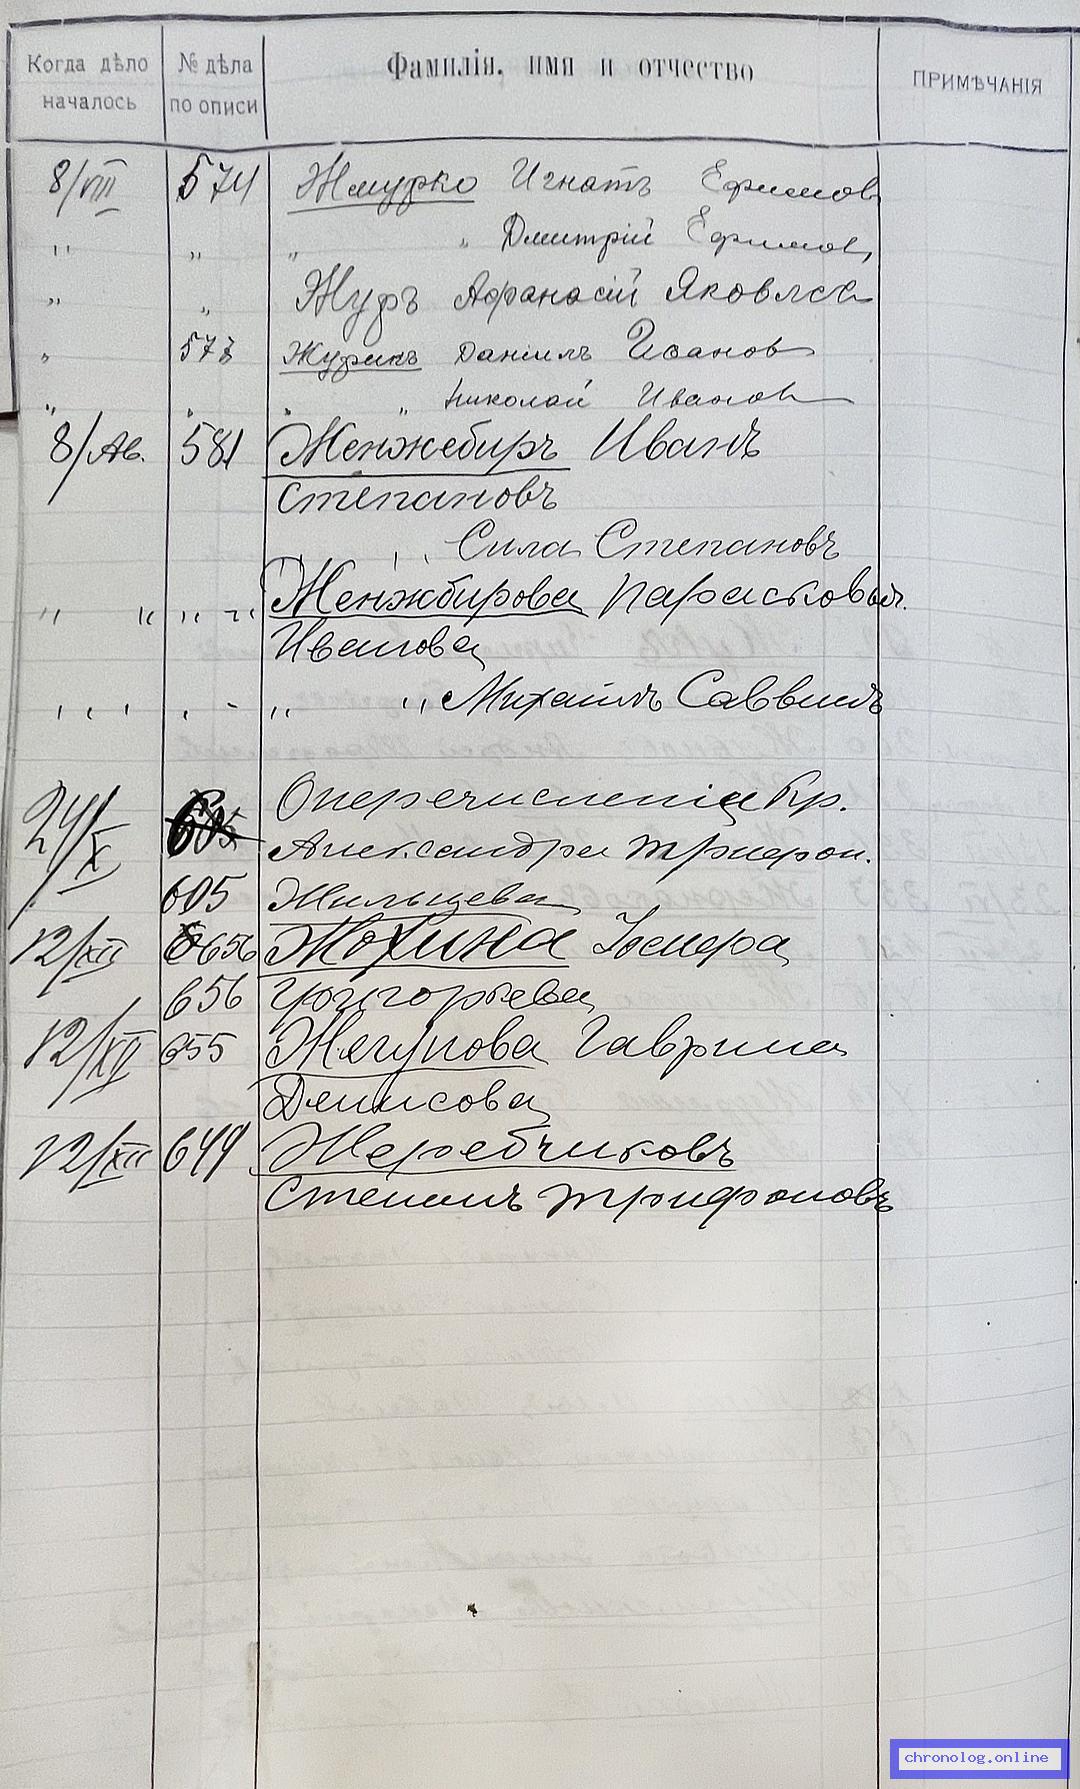 Когда дѣло началось № дѣла по описи Фамилія, имя и отчество ПРИМѢЧАНІЯ
8/VIII 574 Жмурко Игнатъ Ефимов
" " " " Дмитрій Ефимов
" " Журъ Афанасій Яковлев
" 577 Журикъ Даніилъ Иванов
" " " " Николай Иванов
8/Ав. 581 Женжебиръ Иванъ
Степановъ
" " Сила Степановъ
" " " " Женжбирова Парасковья
Иванова
" " " " " " Михаилъ Саввинъ
24/X О перечисленіи кр.
Александра Трифон.
605 Жильцева
12/XII 656 Жохина
656 Григорьева
12/XII 655 Жягунова Гаврила
Денисова
12/XII 649 Жеребчиковъ
Степанъ Трифоновъ
chronolog.online